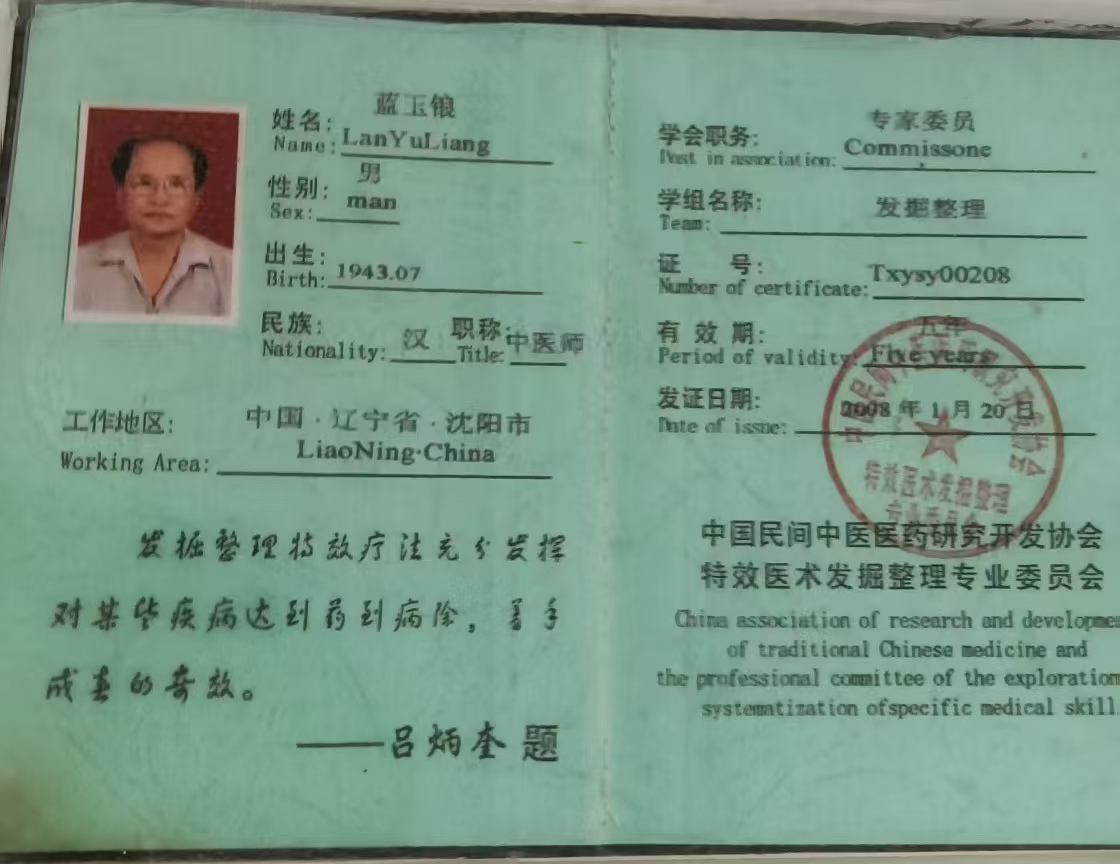 姓名: 蓝玉锒
Name: LanYuLiang
性别: 男
Sex: man
出生:
Birth: 1943.07
民族: 汉 职称: 中医师
Nationality: Title:
工作地区: 中国·辽宁省·沈阳市
Working Area: LiaoNing·China
发掘整理特效疗法充分发挥
对某些疾病达到药到病除，着手
成春的奇效。
——吕炳奎 题
学会职务: 专家委员
Post in association: Commissone
学组名称: 发掘整理
Team:
证 号:
Number of certificate: Txysy00208
有效期: 五年
Period of validity: Five years
发证日期: 2008 年 1 月 20 日
Date of issue:
特效医术发掘整理
专业委员会
中国民间中医医药研究开发协会
特效医术发掘整理专业委员会
China association of research and developme
of traditional Chinese medicine and
the professional committee of the exploration
systematization ofspecific medical skill